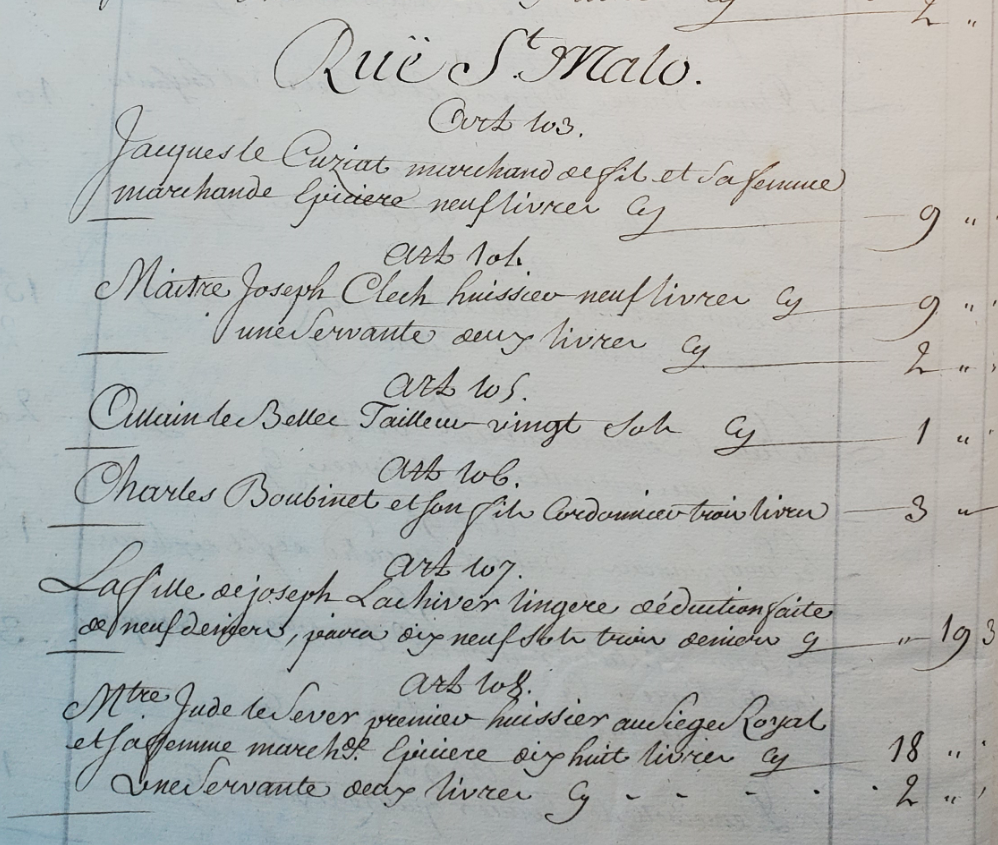 cy 2 "
Ruë St. Malo.
Art 103.
Jacques le Cuziat marchand de fil et sa femme
marchande Epiciere neuf livres cy 9 "
Art 104.
Maitre Joseph Clech huissier neuf livres cy 9 "
une servante deux livres cy 2 "
Art 105.
Allain le Bellec Tailleur vingt sols cy 1 "
Art 106.
Charles Boubinet et son fils Cordonnier trois livres 3 "
Art 107.
La fille de joseph Lachiver lingere déduction faite
de neuf deniers, paira dix neuf sols trois deniers cy " 19 3
Art 108.
Mtre Jude le Sever premier huissier au Siege Royal
et sa femme marchde. Epiciere dix huit livres cy 18 "
Une servante deux livres cy - - - - - 2 "